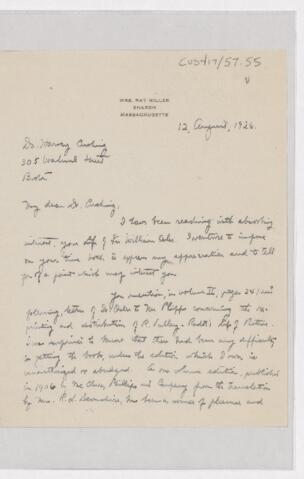 CUS417/57.55
MRS. RAY MILLER
SHARON
MASSACHUSETTS
12, August, 1926.
Dr. Harvey Cushing
305 Walnut Street
Boston
My dear Dr. Cushing,
I have been reading with absorbing
interest, your Life of Sir William Osler. I venture to impose
on your time both, to express my appreciation and to tell
you of a point which may interest you.
You mention, in volume II, pages 24
following, letter of Dr. Osler to Mr. Phipps concerning the re-
printing and distribution of R. Vallery-Radot's Life of Pasteur.
I was surprised to know that there had been any difficulty
in getting the book, unless the edition which I own is
unauthorized or abridged. A one volume edition, published
in 1906 by McClure, Phillips and Company from the translation
by Mrs. R. L. Devonshire, has been a source of pleasure and